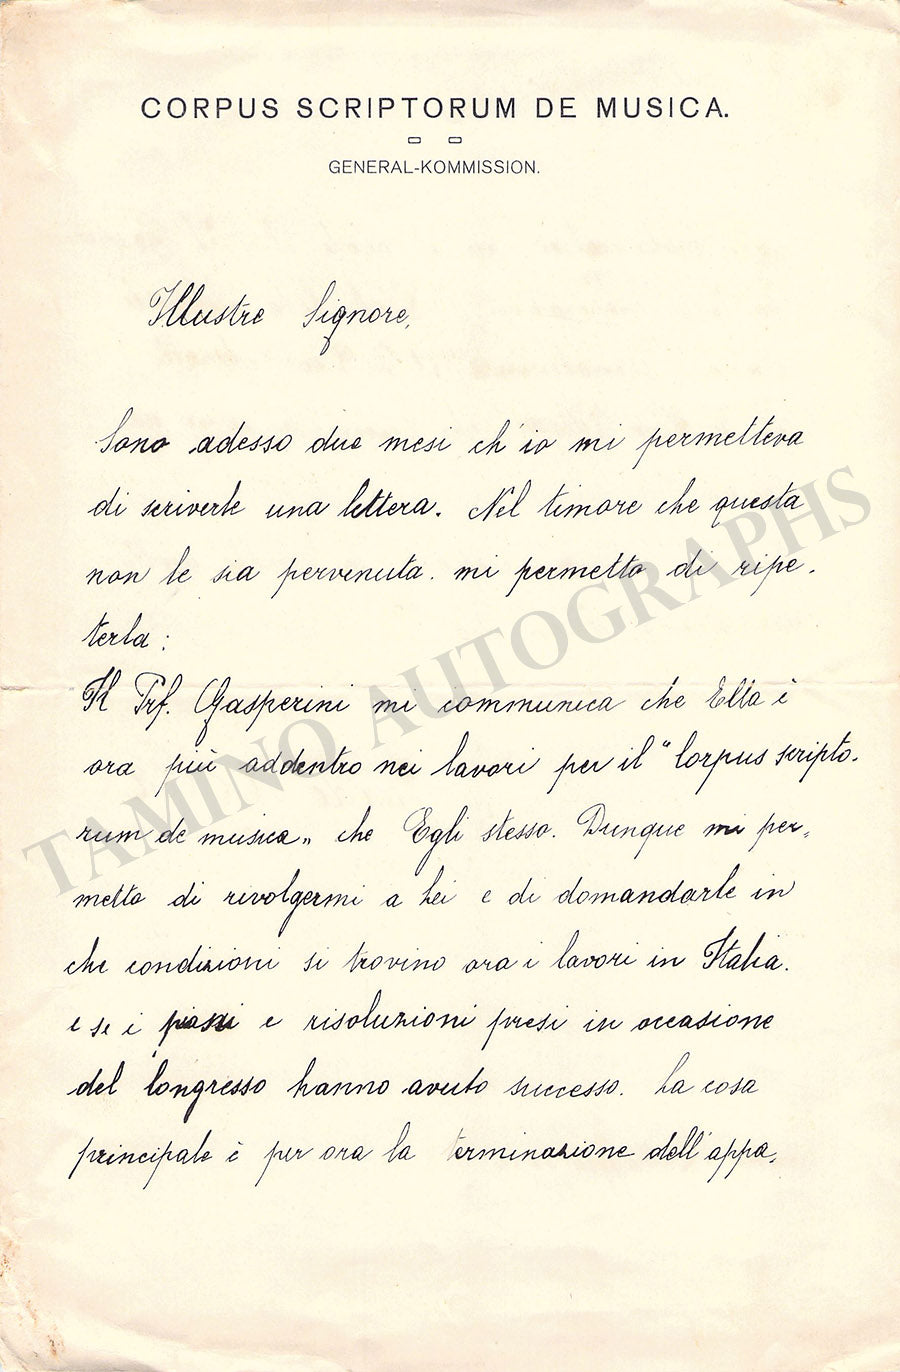 CORPUS SCRIPTORUM DE MUSICA.
GENERAL-KOMMISSION.
Illustre Signore,
Sono adesso due mesi ch'io mi permetteva
di scriverle una lettera. Nel timore che questa
non le sia pervenuta. mi permetto di ripe-
terla:
Il Prf. Gasperini mi communica che Ella è
ora più addentro nei lavori per il "Corpus scripto-
rum de musica„ che Egli stesso. Dunque mi per-
metto di rivolgermi a Lei e di domandarle in
che condizioni si trovino ora i lavori in Italia.
e se i passi e risoluzioni presi in occasione
del Congresso hanno avuto successo. La cosa
principale è per ora la terminazione dell'appa-
TAMINO AUTOGRAPHS